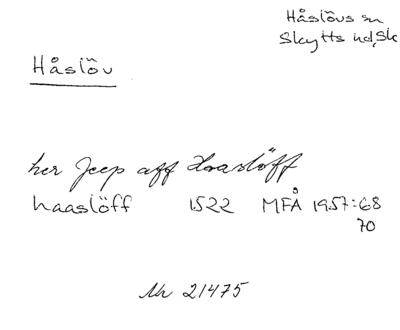 Håslövs sn
Skytts hd, Sk
Håslöv
her Jeep aff Haaslöff
haaslöff 1522 MFÅ 1957:68
70
Nr 21475